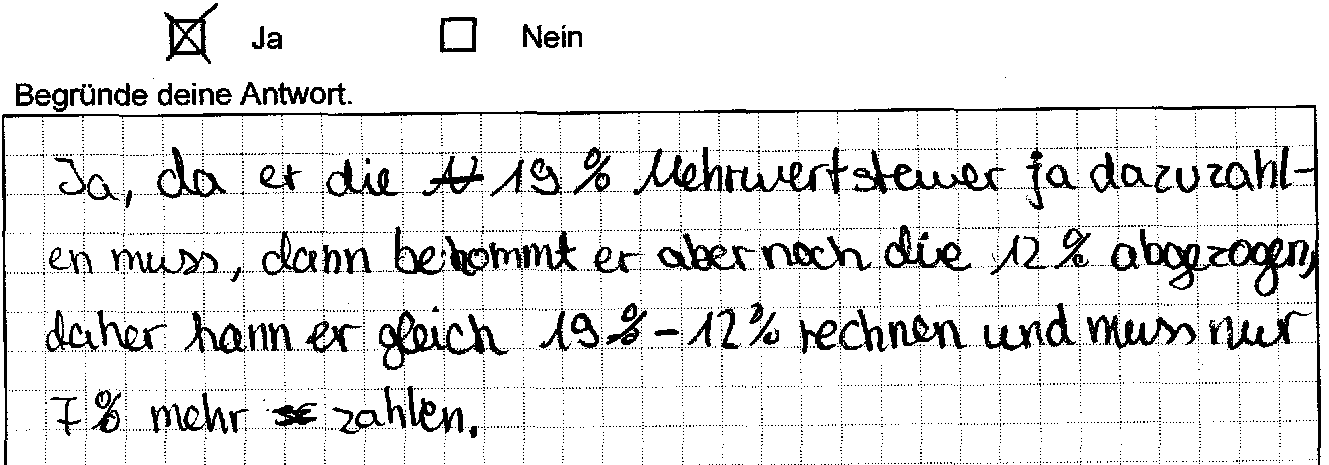 Ja Nein
Begründe deine Antwort.
Ja, da er die 19% Mehrwertsteuer ja dazuzahl-
en muss, dann bekommt er aber noch die 12% abgezogen,
daher kann er gleich 19%-12% rechnen und muss nur
7% mehr zahlen.